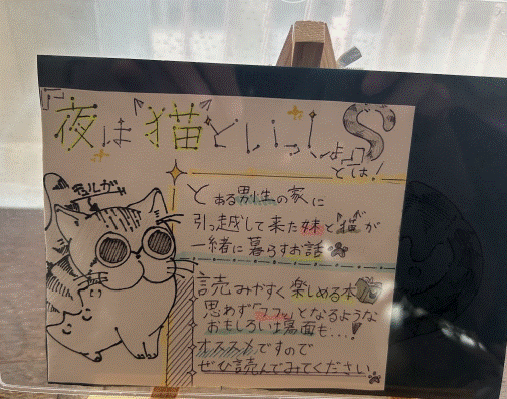 夜は猫といっしょ
とは!
とある男性の家に
引っ越して来た妹と"猫"が
一緒に暮らすお話
読みやすく楽しめる本
思わず「フフッ」となるような
おもしろい場面も...!
オススメですので
ぜひ読んでみてください